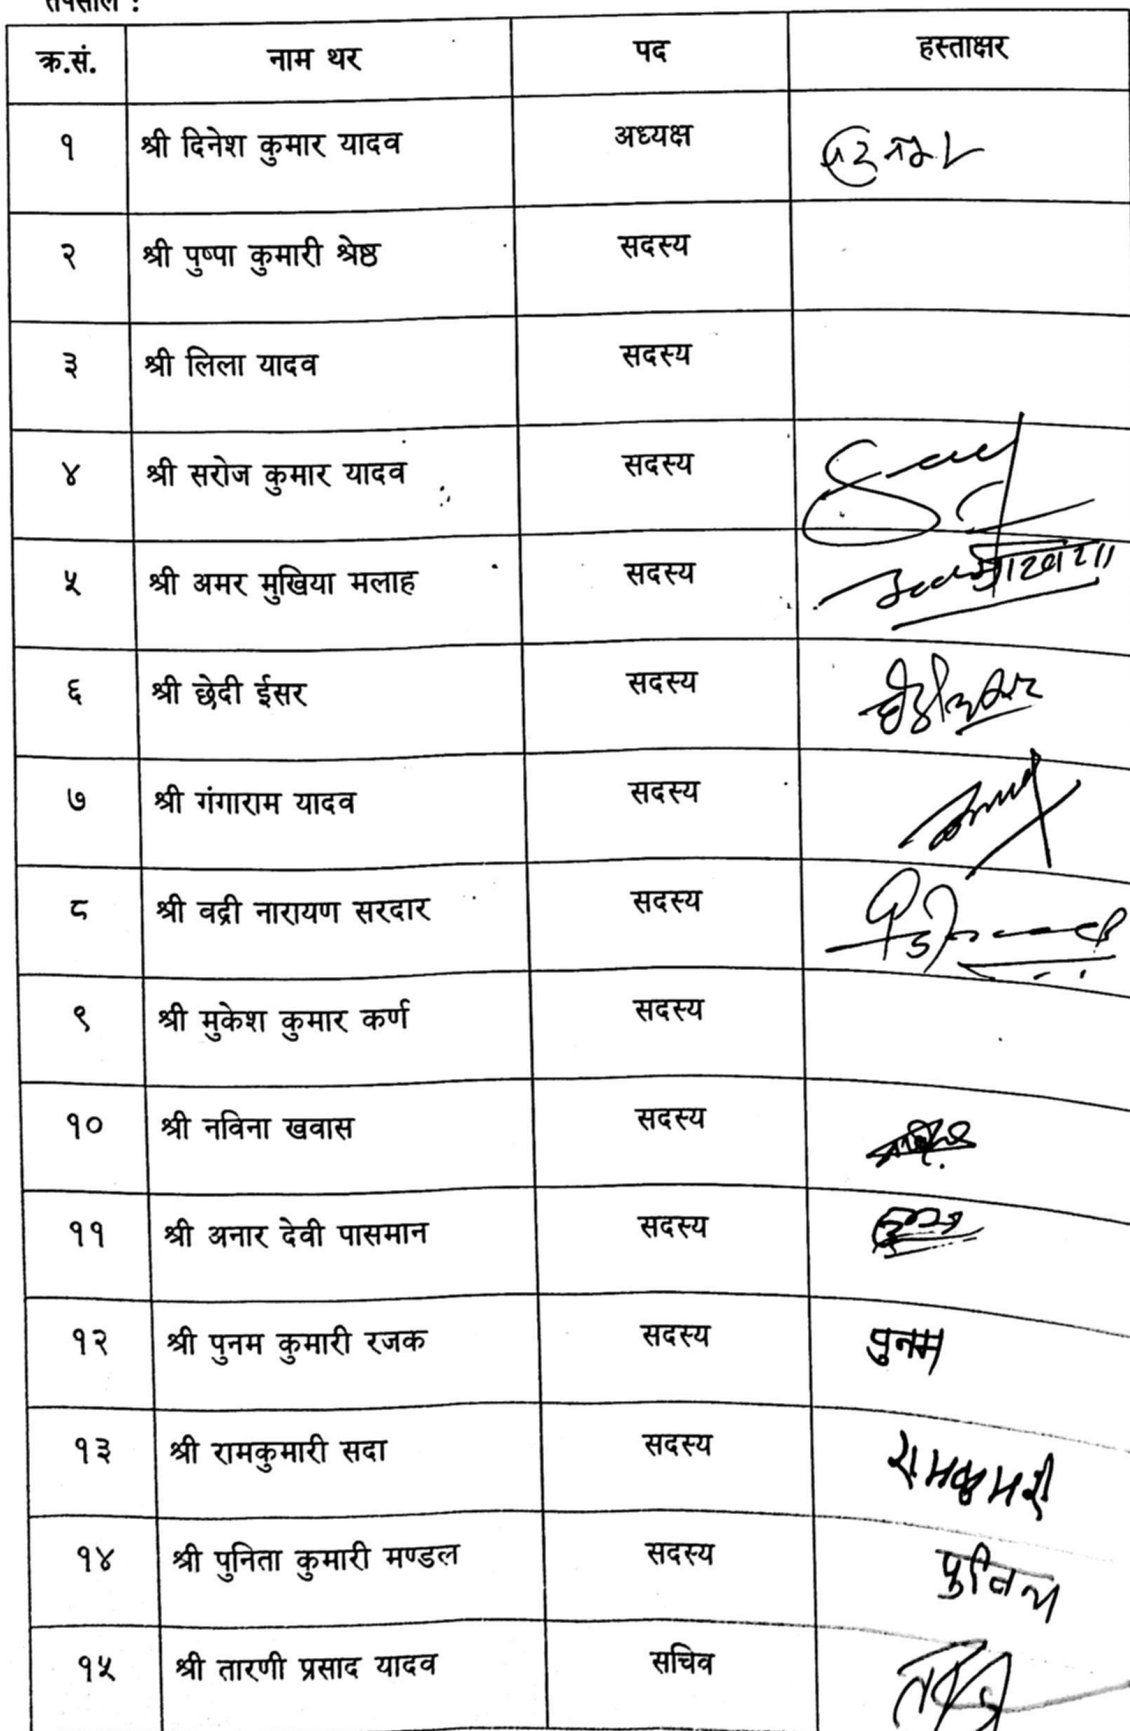 तपसील :
क्र.सं. नाम थर पद हस्ताक्षर
१ श्री दिनेश कुमार यादव अध्यक्ष
२ श्री पुष्पा कुमारी श्रेष्ठ सदस्य
३ श्री लिला यादव सदस्य
४ श्री सरोज कुमार यादव सदस्य
५ श्री अमर मुखिया मलाह सदस्य
६ श्री छेदी ईसर सदस्य
७ श्री गंगाराम यादव सदस्य
८ श्री वद्री नारायण सरदार सदस्य
९ श्री मुकेश कुमार कर्ण सदस्य
१० श्री नविना खवास सदस्य
११ श्री अनार देवी पासमान सदस्य
१२ श्री पुनम कुमारी रजक सदस्य पुनम
१३ श्री रामकुमारी सदा सदस्य रामकुमरी
१४ श्री पुनिता कुमारी मण्डल सदस्य
१५ श्री तारणी प्रसाद यादव सचिव